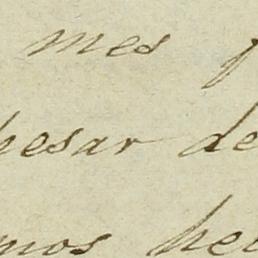 mes
pesar de
mos